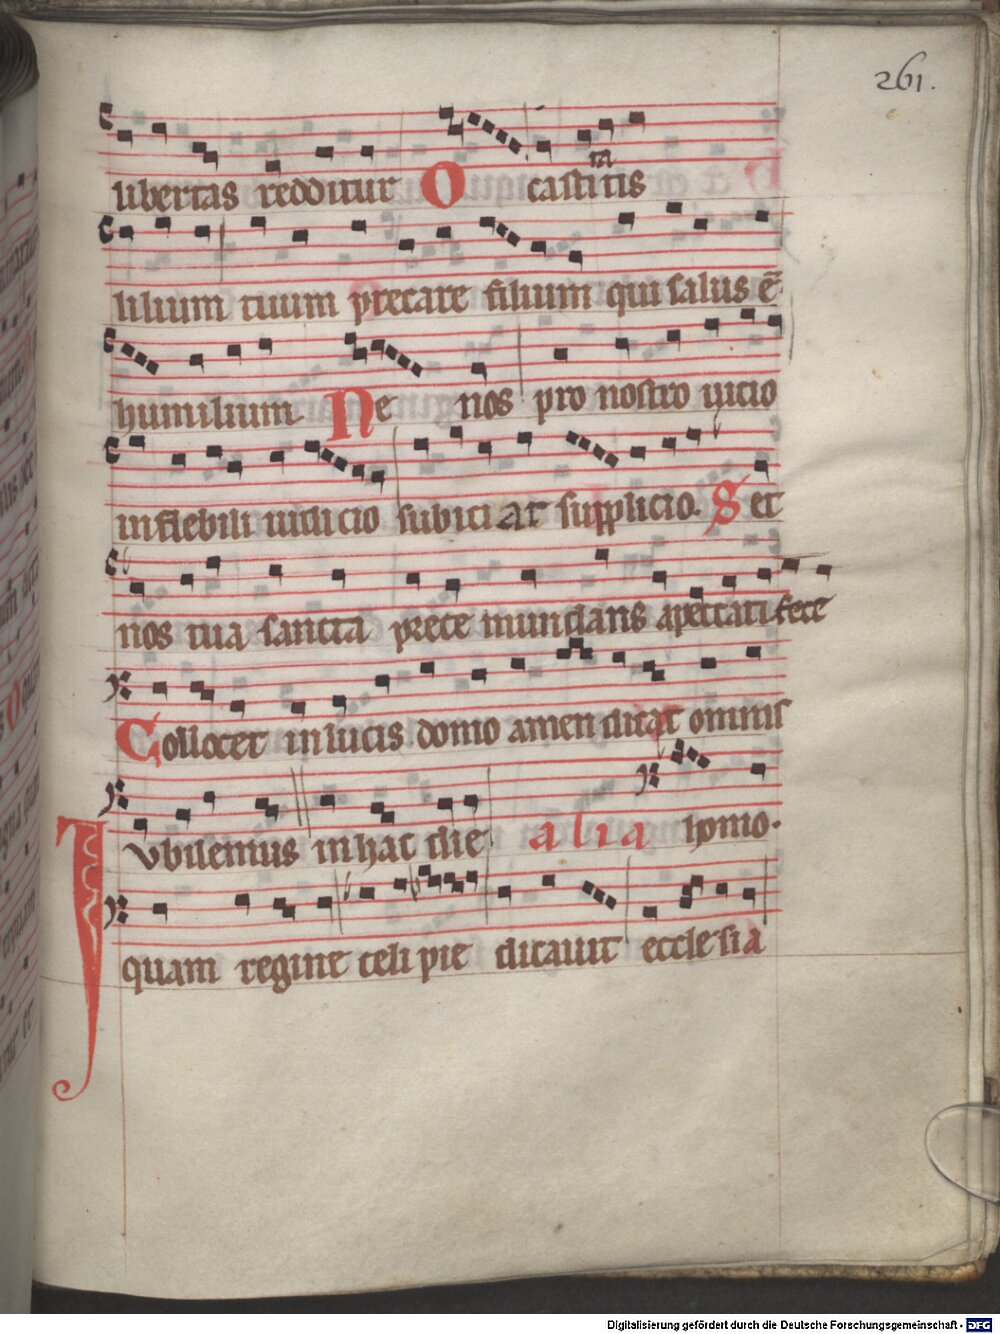 261.
libertas redditur O castitatis
lilium tuum precare filium qui salus ē
humilium. Ne nos pro nostro uicio
in flebili iudicio subiciat supplicio. Set
nos tua sancta prece mundans a peccati fece
Collocet in lucis domo amen dicat omnis
homo.
Jubilemus in hac die alia
quam regine celi pie dicauit ecclesia
Digitalisierung gefördert durch die Deutsche Forschungsgemeinschaft - DFG